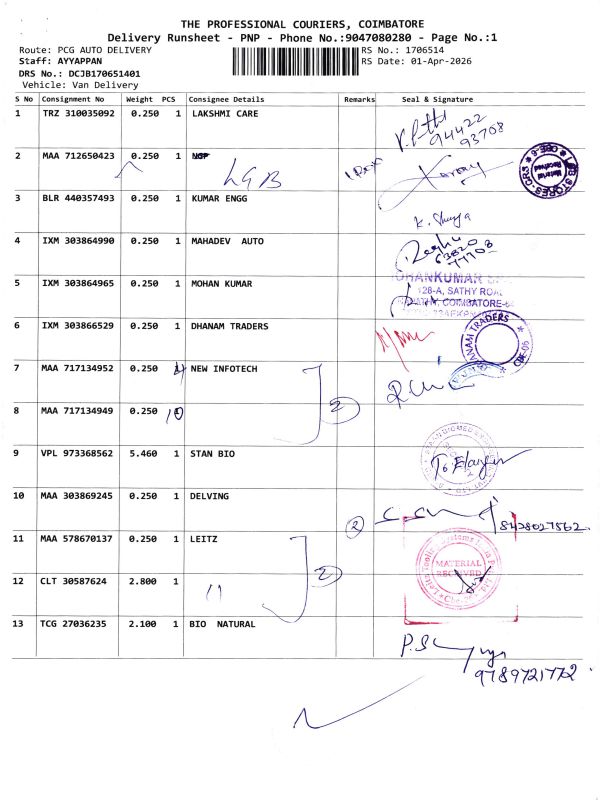 THE PROFESSIONAL COURIERS, COIMBATORE
Delivery Runsheet - PNP - Phone No.:9047080280 - Page No.:1
Route: PCG AUTO DELIVERY RS No.: 1706514
Staff: AYYAPPAN RS Date: 01-Apr-2026
DRS No.: DCJB170651401
Vehicle: Van Delivery
S No Consignment No Weight PCS Consignee Details Remarks Seal & Signature
1 TRZ 310035092 0.250 1 LAKSHMI CARE
94422
93708
2 MAA 712650423 0.250 1 NGP LGB 1 Box
LGB STORES, GR3
Material Received
3 BLR 440357493 0.250 1 KUMAR ENGG
4 IXM 303864990 0.250 1 MAHADEV AUTO
Raghu
63820
77708
5 IXM 303864965 0.250 1 MOHAN KUMAR
128-A, SATHY ROAD
COIMBATORE
6 IXM 303866529 0.250 1 DHANAM TRADERS
7 MAA 717134952 0.250 NEW INFOTECH
2
8 MAA 717134949 0.250
9 VPL 973368562 5.460 1 STAN BIO
10 MAA 303869245 0.250 1 DELVING
2 8428027562
11 MAA 578670137 0.250 1 LEITZ
MATERIAL
RECEIVED
2
12 CLT 30587624 2.800 1 11
13 TCG 27036235 2.100 1 BIO NATURAL
9789721772